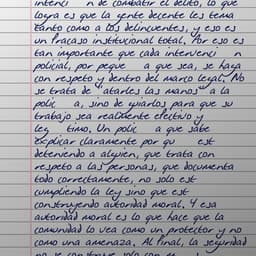 intenci n de combatir el delito, lo que
logra es que la gente decente les tema
tanto como a los delincuentes, y eso es
un fracaso institucional total. Por eso es
tan importante que cada intervenci n
policial, por peque a que sea, se haga
con respeto y dentro del marco legal. No
se trata de "atarles las manos" a la
polic a, sino de guiarlos para que su
trabajo sea realmente efectivo y
leg timo. Un polic a que sabe
explicar claramente por qu est
deteniendo a alguien, que trata con
respeto a las personas, que documenta
todo correctamente, no solo est
cumpliendo la ley sino que est
construyendo autoridad moral. Y esa
autoridad moral es lo que hace que la
comunidad lo vea como un protector y no
como una amenaza. Al final, la seguridad
no se construye solo con